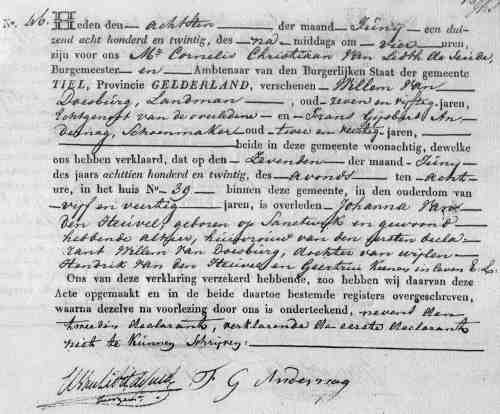 No. 46. Heden den achtsten der maand Juny een dui-
zend acht honderd en twintig, des na middags om vier uren,
zijn voor ons Mr. Cornelis Christiaan Van Lidth de Jeude,
Burgemeester en Ambtenaar van den Burgerlijken Staat der gemeente
TIEL, Provincie GELDERLAND, verschenen Willem Van
Doesburg, Landman, oud zeven en vyftig jaren,
Echtgenoot van de overledene en Frans Gysbert An-
dernag, Schoenmaker oud twee en veertig jaren,
beide in deze gemeente woonachtig, dewelke
ons hebben verklaard, dat op den Zevenden der maand Juny
des jaars achttien honderd en twintig, des avonds ten acht
ure, in het huis No. 39 binnen deze gemeente, in den ouderdom van
vyf en veertig jaren, is overleden Johanna Van
den Heuvel, geboren op Sandwyk en gewoond
hebbende alhier, huisvrouw van den eersten decla-
rant Willem Van Doesburg, dochter van wylen
Hendrik Van den Heuvel en Geertrui in leven E. L.
Ons van deze verklaring verzekerd hebbende, zoo hebben wij daarvan deze
Acte opgemaakt en in de beide daartoe bestemde registers overgeschreven,
waarna dezelve na voorlezing door ons is onderteekend, nevens den
tweeden declarant, verklarende de eerste declarant
niet te kunnen schryven.
F G Andernag